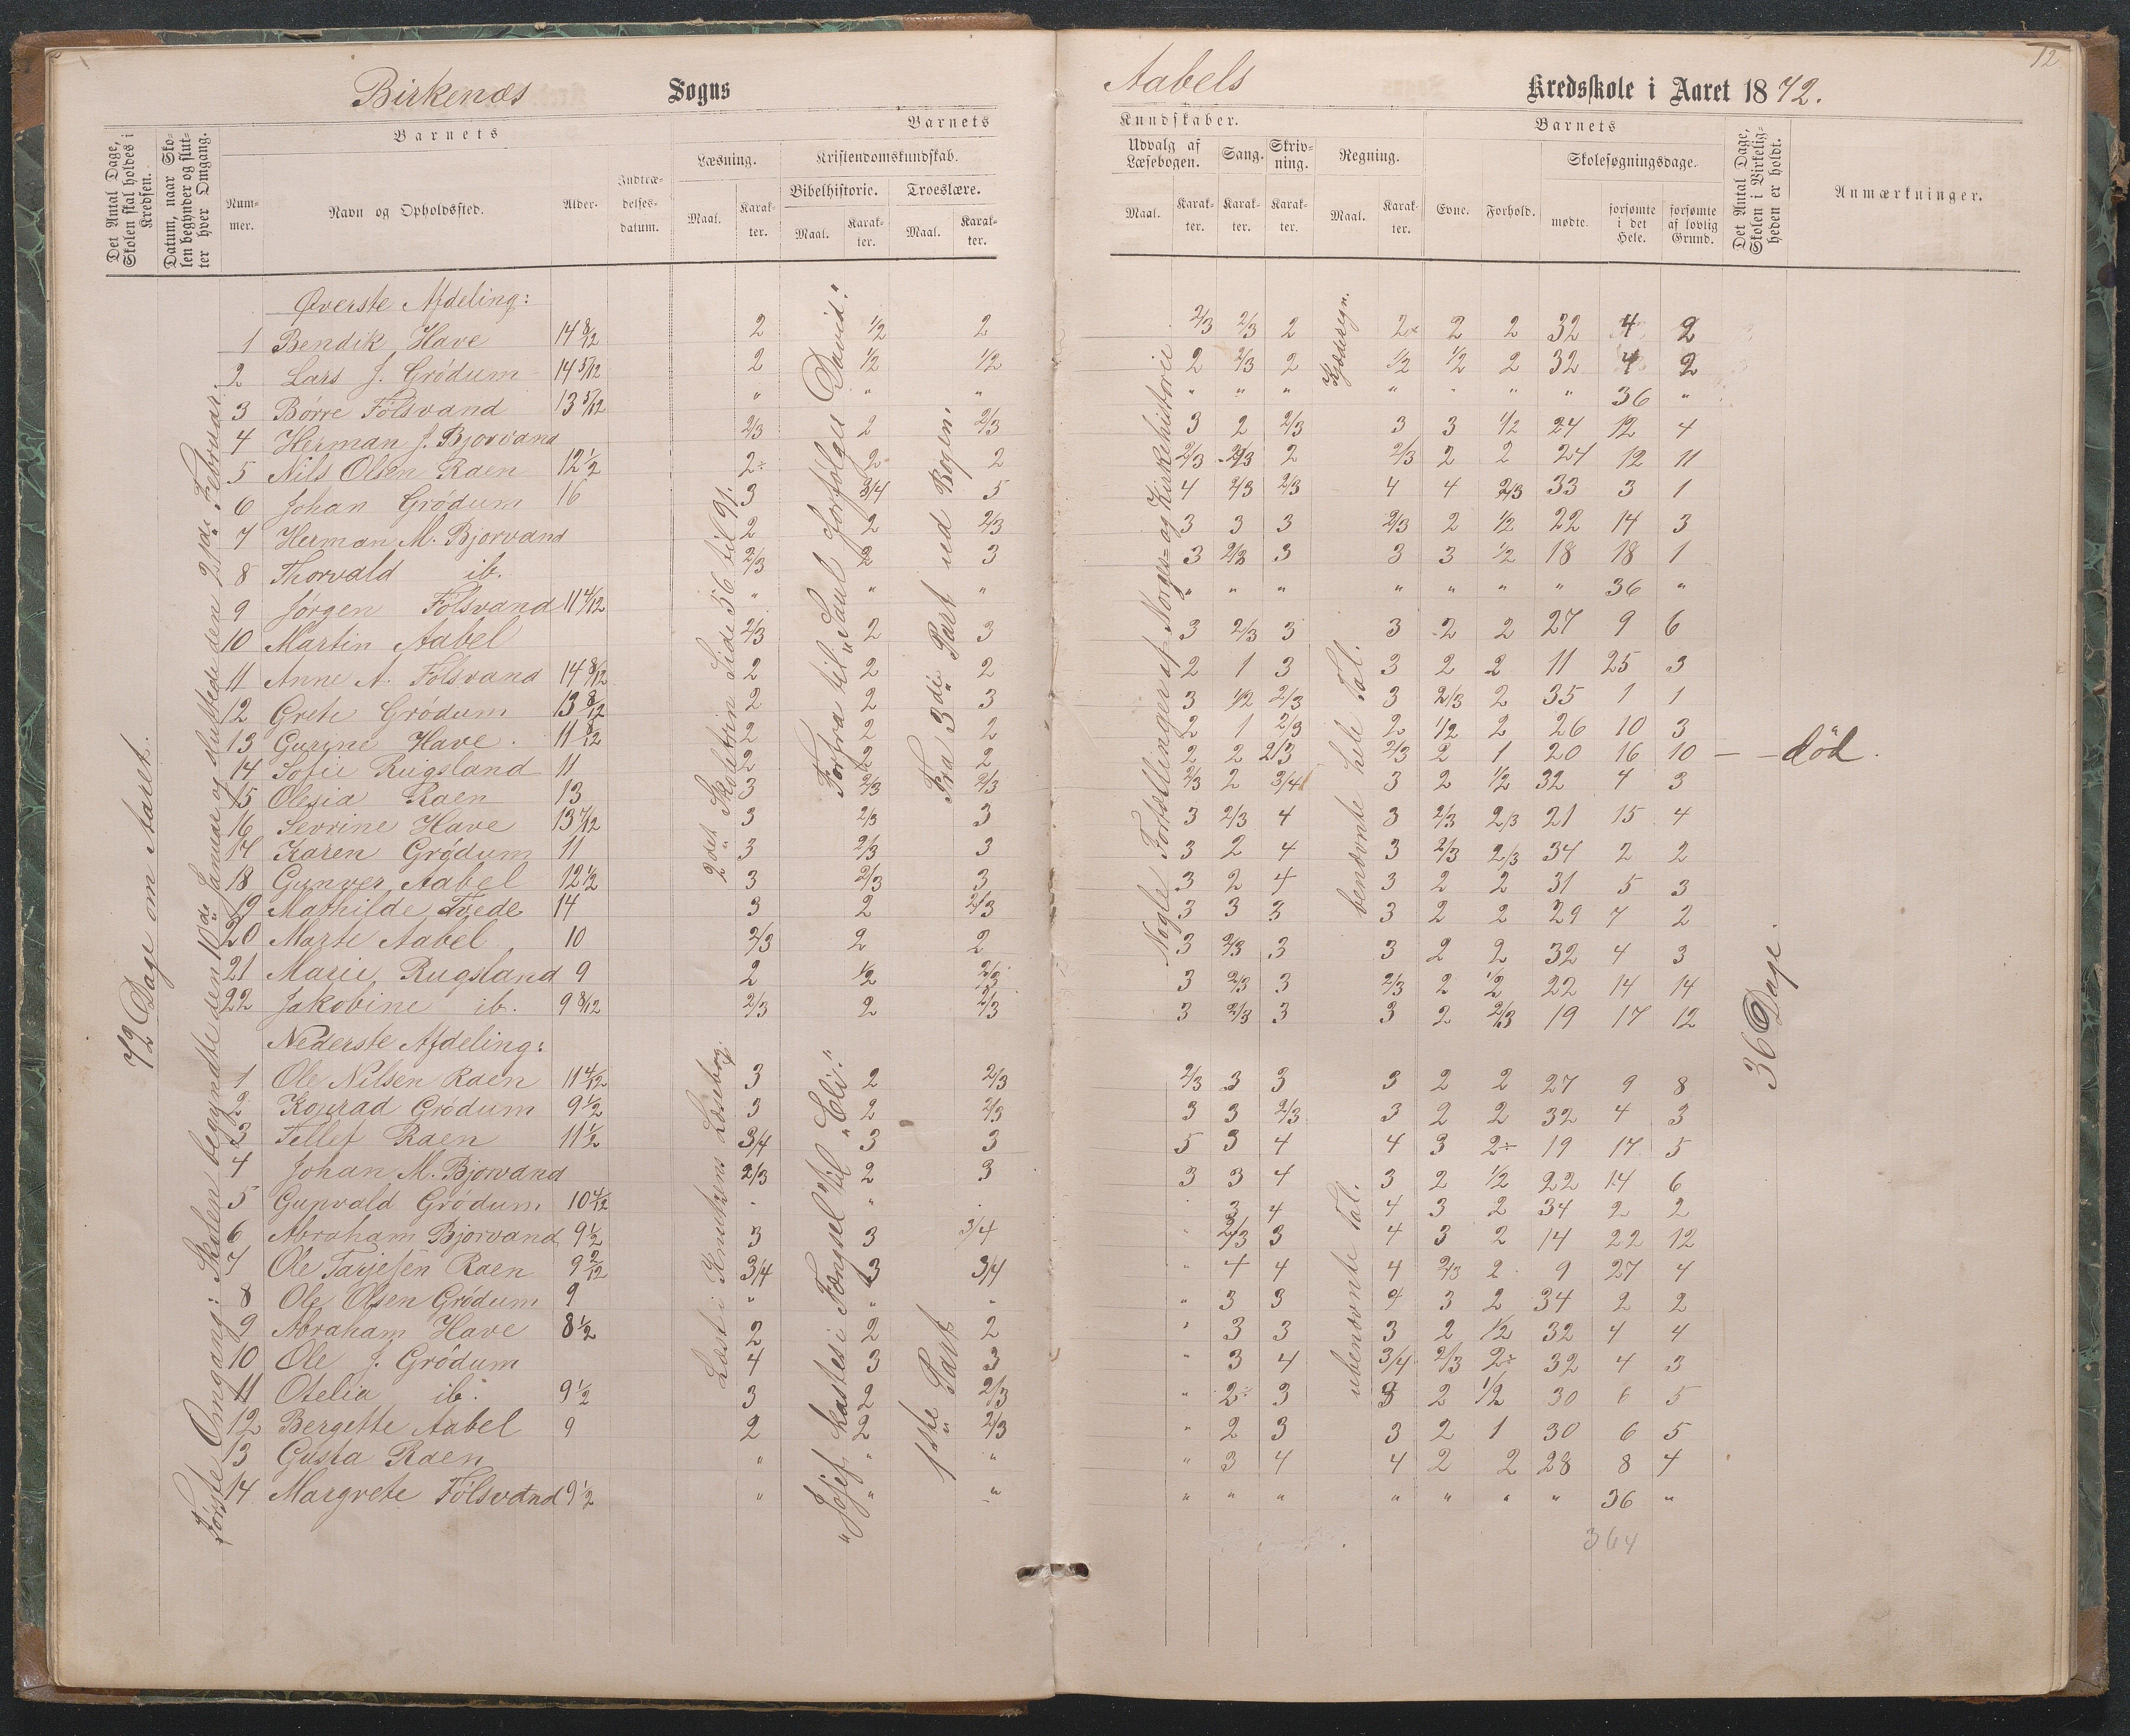 12
Birkenæs Sogns Aabels Kredsskole i Aaret 1872.
Det Antal Dage, Skolen skal holdes i Kredsen.
Datum, naar Skolen begynder og slutter hver Omgang.
Barnets
Nummer.
Navn og Opholdssted.
Alder.
Indtrædelsesdatum.
Barnets
Læsning.
Maal.
Karakter.
Kristendomskundskab.
Bibelhistorie.
Maal.
Karakter.
Troeslære.
Maal.
Karakter.
Kundskaber.
Udvalg af Læsebogen.
Maal.
Karakter.
Sang.
Karakter.
Skrivning.
Karakter.
Regning.
Maal.
Karakter.
Barnets
Evne.
Forhold.
Skolesøgningsdage.
mødte.
forsømte i det Hele.
forsømte af lovlig Grund.
Det Antal Dage, Skolen i Virkeligheden er holdt.
Anmærkninger.
72 Dage om Aaret.
Første Omgang: Skolen begyndte den 10de Januar og sluttede den 2den Februar.
2det Skoletrin Side 56 til 91.
Forfra til "Saul forfølger David."
Fra 3die Part ud Bogen.
Nogle Fortællinger af Norges- og Kirkehistorie
Kjæderegn.
benævnte hele Tal.
Øverste Afdeling:
1 Bendik Have 14 8/12 2 1/2 2 2/3 2/3 2 2÷ 2 2 32 4 2
2 Lars J. Grødum 14 5/12 2 1/2 1/2 2 2/3 2 1/2 1/2 2 32 4 2
3 Børre Fölsvand 13 5/12 " " " " " " " " " " 36 "
4 Herman J. Bjorvand 2/3 2 2/3 3 2 2/3 3 3 1/2 24 12 4
5 Nils Olsen Raen 12 1/2 2÷ 2 2 2/3 2/3 2 2/3 2 2 24 12 11
6 Johan Grödum 16 3 3/4 5 4 2/3 2/3 4 4 2/3 33 3 1
7 Herman M. Bjorvand 2 2 2/3 3 3 3 2/3 2 1/2 22 14 3
8 Thorvald ib. 2/3 2 3 3 2/3 3 3 3 1/2 18 18 1
9 Jørgen Fölsvand 11 4/12 " " " " " " " " " " 36 "
10 Martin Aabel 2/3 2 3 3 2/3 3 3 2 2 27 9 6
11 Anne A. Fölsvand 14 8/12 2 2 2 2 1 3 3 2 2 11 25 3
12 Grete Grödum 13 8/12 2 2 3 3 1/2 2/3 3 2/3 2 35 1 1
13 Gurine Have. 11 8/12 2 2 2 2 1 2/3 2 1/2 2 26 10 3
14 Sofie Rugsland 11 2 2 2 2 2 2/3 2/3 2 1 20 16 10 — død.
15 Olesia Raen 13 3 2/3 2/3 2/3 2 3/4 3 2 1/2 32 4 3
16 Sevrine Have 13 7/12 3 2/3 3 3 2/3 4 3 2/3 2/3 21 15 4
17 Karen Grødum 11 3 2/3 3 3 2 4 3 2/3 2/3 34 2 2
18 Gunver Aabel 12 1/2 3 2/3 3 3 2 4 3 2 2 31 5 3
19 Mathilde Tvede 14 3 2 2/3 3 3 3 3 2 2 29 7 2
20 Marte Aabel 10 2/3 2 2 3 2/3 3 3 2 2 32 4 3
21 Marie Rugsland 9 2 1/2 2/3 3 2/3 3 2/3 2 1/2 22 14 14
22 Jakobine ib. 9 8/12 2/3 2 2/3 3 2/3 3 3 2 2/3 19 17 12
36 Dage.
Nederste Afdeling:
Læst i Knutzens Læsebog.
"Josef kastes i Fængsel" til "Eli."
1ste Part
ubenævnte Tal.
1 Ole Nilsen Raen 11 4/12 3 2 2/3 2/3 3 3 3 2 2 27 9 8
2 Konrad Grödum 9 1/2 3 2 2/3 3 3 2/3 3 2 2 32 4 3
3 Tellef Raen 11 1/2 3/4 3 3 5 3 4 4 3 2÷ 19 17 5
4 Johan M. Bjorvand 2/3 2 3 3 3 4 3 2 1/2 22 14 6
5 Gunvald Grödum 10 4/12 " " " " 3 4 4 3 2 34 2 2
6 Abraham Bjorvand 9 1/2 3 3 3/4 " 2/3 3 4 3 2 14 22 12
7 Ole Tarjesen Raen 9 2/12 3/4 3 3/4 " 4 4 4 2/3 2 9 27 4
8 Ole Olsen Grödum 9 " " " " 3 3 4 3 2 34 2 2
9 Abraham Have 8 1/2 2 2 2 " 3 3 3 2 1/2 32 4 4
10 Ole J. Grödum 4 3 3 " 3 4 3/4 2/3 2÷ 32 4 3
11 Otelia ib. 9 1/2 3 2 2/3 " 2÷ 3 3 2 1/2 30 6 5
12 Bergette Aabel 9 2 2 2/3 " 2 3 3 2 1 30 6 5
13 Gusta Raen " " " " 3 4 4 2 2 28 8 4
14 Margrete Fölsvand 9 1/2 " " " " " " " " " " 36 "
364